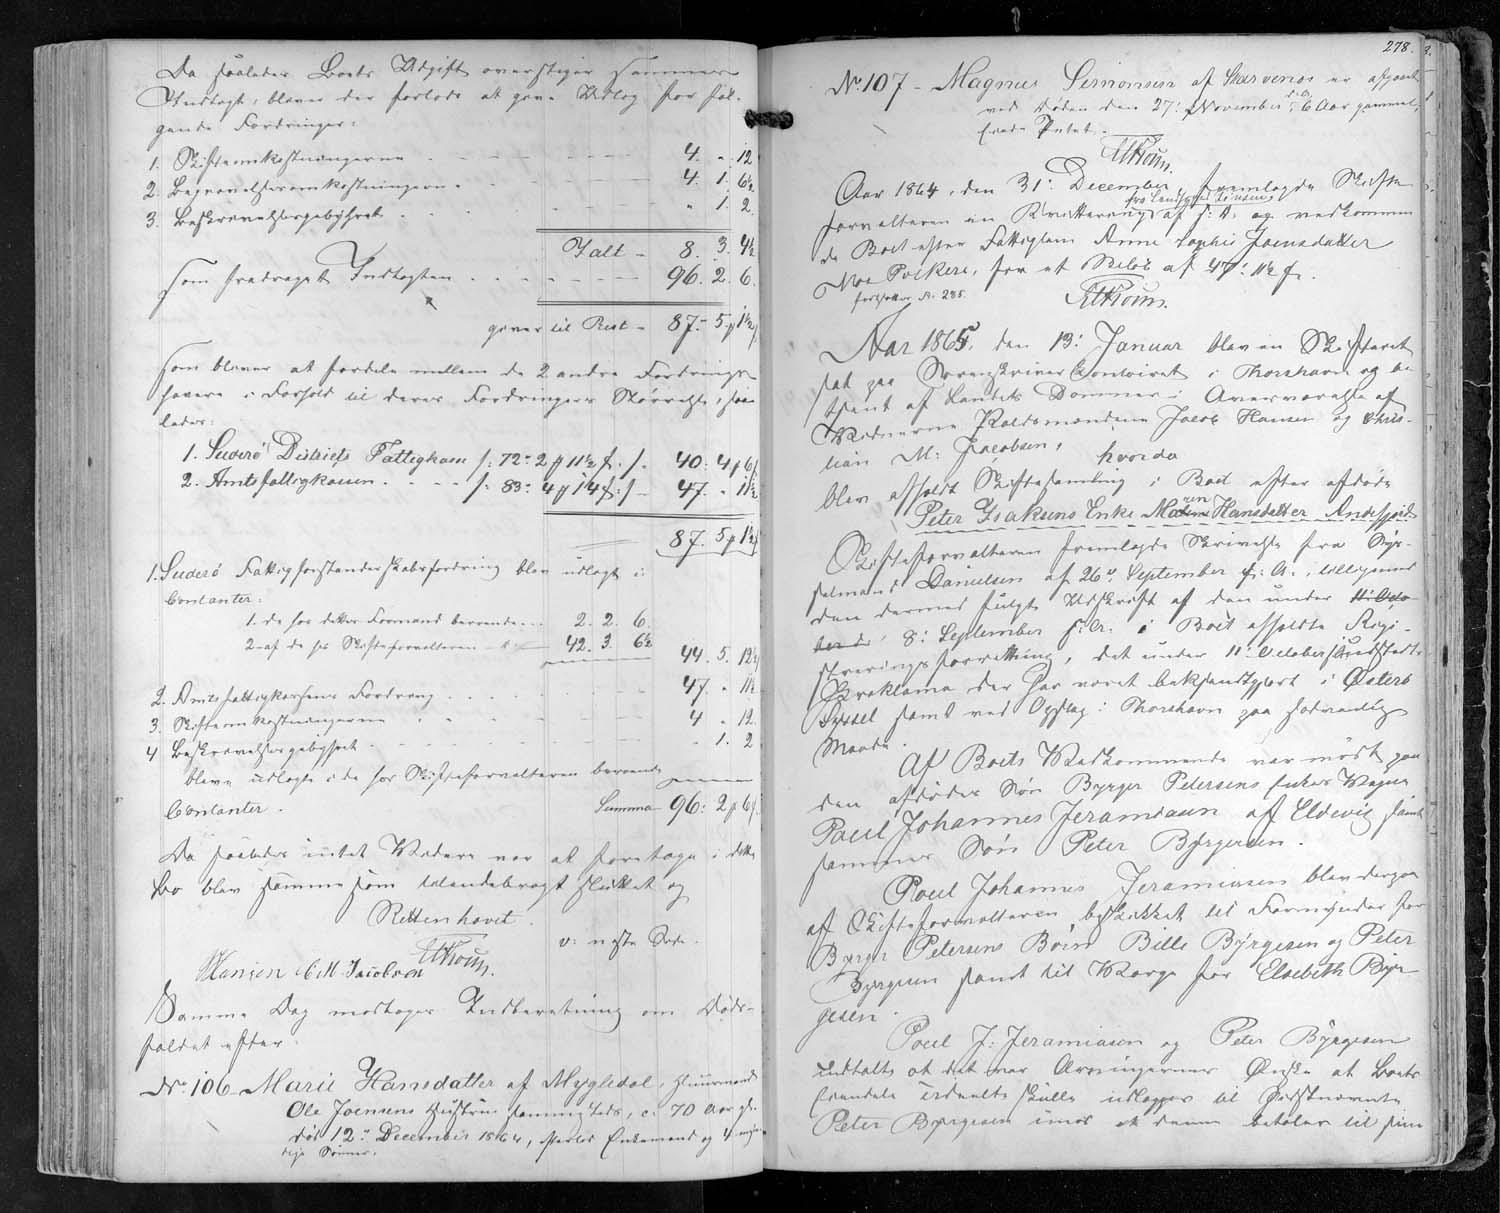 Da saaledes Boets Udgift overstiger sammes
Indtægt, bleve der forlods at gøre Udlæg for føl-
gende Fordringer:
1. Skifteomkostningerne 4. " 12
2. Begravelsesomkostningerne 4. 1. 6½
3. Beskrivelsesgebyhret " 1. 2
Ialt - 8. 3. 4½
som fradraget Indtægten 96. 2. 6.
giver til Rest - 87. 5 p 1½ f
som bliver at fordele mellem de 2 andre Fordrings-
havere i Forhold til deres Fordringers Størrelse, saa-
ledes:
1. Suderø Districts Fattigkasse /: 72 - 2 p 11½ f :/. 40. 4 p 6 f
2. Amtsfattigkassen /: 83. 4 p 14 f :/ - 47. " 11½
87. 5 p 1½ f
1. Suderø Fattigforstanderskabs fordring blev udlagt i
Contanter:
1. de hos dettes Formand beroende 2. 2. 6.
2. af de hos Skifteforvalteren 42. 3. 6½
44. 5. 12½
2. Amtsfattigkassens Fordring 47. " 11½
3. Skifteomkostningerne 4 " 12.
4 Beskrivelsesgebyhret " 1. 2
bleve udlagte i de hos Skifteforvalteren beroende
Contanter. Summa 96. 2 p 6 f
Da saaledes intet Videre var at foretage i dette
Bo blev samme som tilendebragt sluttet og
Retten hævet.
v: næste Side.
Hansen C M. Jacobsen
Samme Dag modtoges Indberetning om Døds-
faldet efter:
No. 106 - Marie Hansdatter af Mygledal, Huusmand
Ole Joensens Hustrue sammesteds, c. 70 Aar gl.
død 12te December 1864, efterlod Enkemand og 4 myn-
dige Sønner.
278.
No 107 - Magnus Simonsen af Skarvenæs er afgaaet
ved Døden den 27: November 6 Aar gammel,
Aar 1864, den 31: December fremlagde Skifte
fra Landfoged
forvalteren en Kvittering af f: A. og vedkommen
de Boet efter Fattiglem Anne Sophie Joensdatter
Noe Porkere, for et Beløb af 47: 11½ f.
fortsættes A. 285.
Aar 1865, den 13: Januar blev en Skifteret
sat paa Sorenskriver Contoiret i Thorshavn og be-
tjent af Landets Dommer i Overværelse af
Vidnerne Politimændene Jacob Hansen og Chris-
tian M: Jacobsen, hvorda
blev afholdt Skiftesamling i Boet efter afdøde
Peter Isaksens Enke Maren Hansdatter Andefjord
Skifteforvalteren fremlagde Skrivelse fra Sys-
selmand Danielsen af 26de September f: A., tilligemed
den dermed fulgte Udskrift af den under
8: September f. A. i Boet afholdte Regi-
streringsforretning, det under 11: October udstedte
Proklama der har været bekjendtgjort i Østerø
Syssel samt ved Opslag i Thorshavn paa sædvanlig
Maade.
Af Boets Vedkommende var mødt paa
den afdødes Søn Byrger Petersens Enkes Vegne
Poul Johannes Jeramiasen af Eldevig samt
sammes Søn Peter Byrgesen.
Poul Johannes Jeramiasen blev derpaa
af Skifteforvalteren beskikket til Formynder for
Byrger Petersens Børn Bille Byrgesen og Peter
Byrgesen samt til Værge for Elsebeth Byr-
gesen.
Poul J: Jeramiasen og Peter Byrgesen
udtalte at det var Arvingernes Ønske at Boets
Eiendele udeelte skulle udlægges til Sidstnævnte
Peter Byrgesen imod at denne betaler til sine